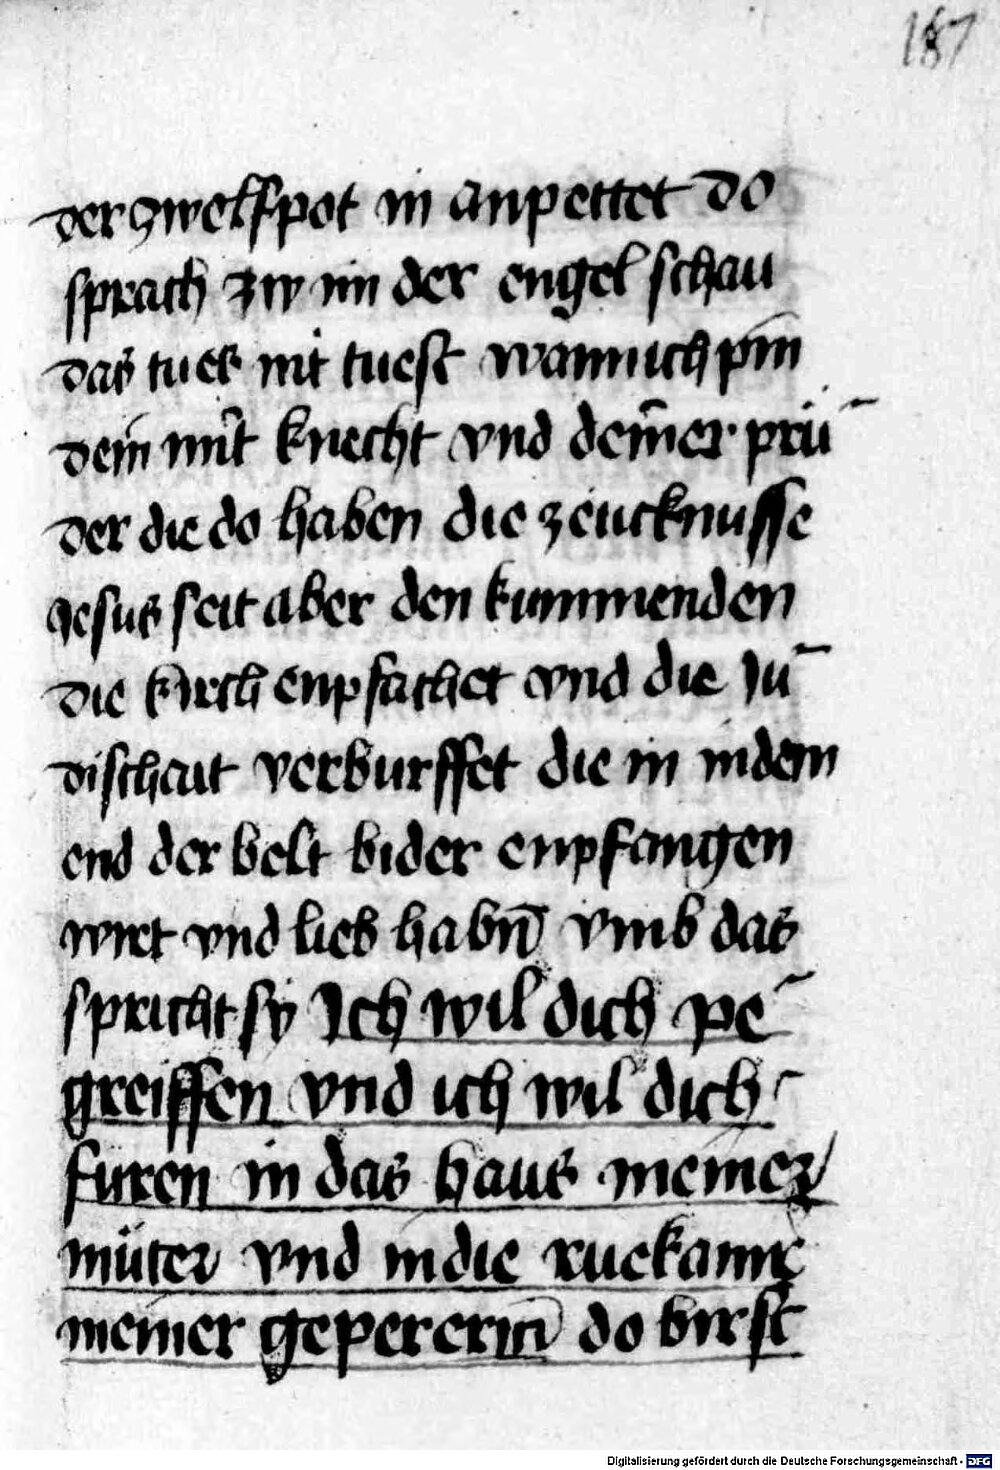 187
der zwelfpot in anpettet do
sprach zw im der engel schau
das tues nit tuest wann ich pin
dein mit knecht vnd deiner prü¯
der die do haben die zeucknusse
jesus seit aber den kummenden
die kirch enpfachet vnd die Ju¯
dischait verburffet die in in dem
end der belt bider enpfangen
wirt vnd lieb habn̄ vmb das
spricht sy Ich wil dich pe¯
greiffen vnd ich wil dich
füren in das haus meiner
müter vnd in die ruckamer
meiner gepererin do birst
Digitalisierung gefördert durch die Deutsche Forschungsgemeinschaft - DFG